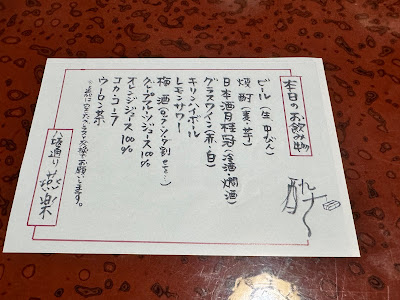 本日のお飲み物
ビール(生 中びん)
焼酎(麦 芋)
日本酒 月桂冠(冷酒 燗酒)
グラスワイン(赤・白)
キリンハイボール
レモンサワー
梅酒(ロック・ソーダ割
グレープフルーツジュース 100%
オレンジジュース 100%
コカ・コーラ
ウーロン茶
お願いします。
八坂通り 燕楽